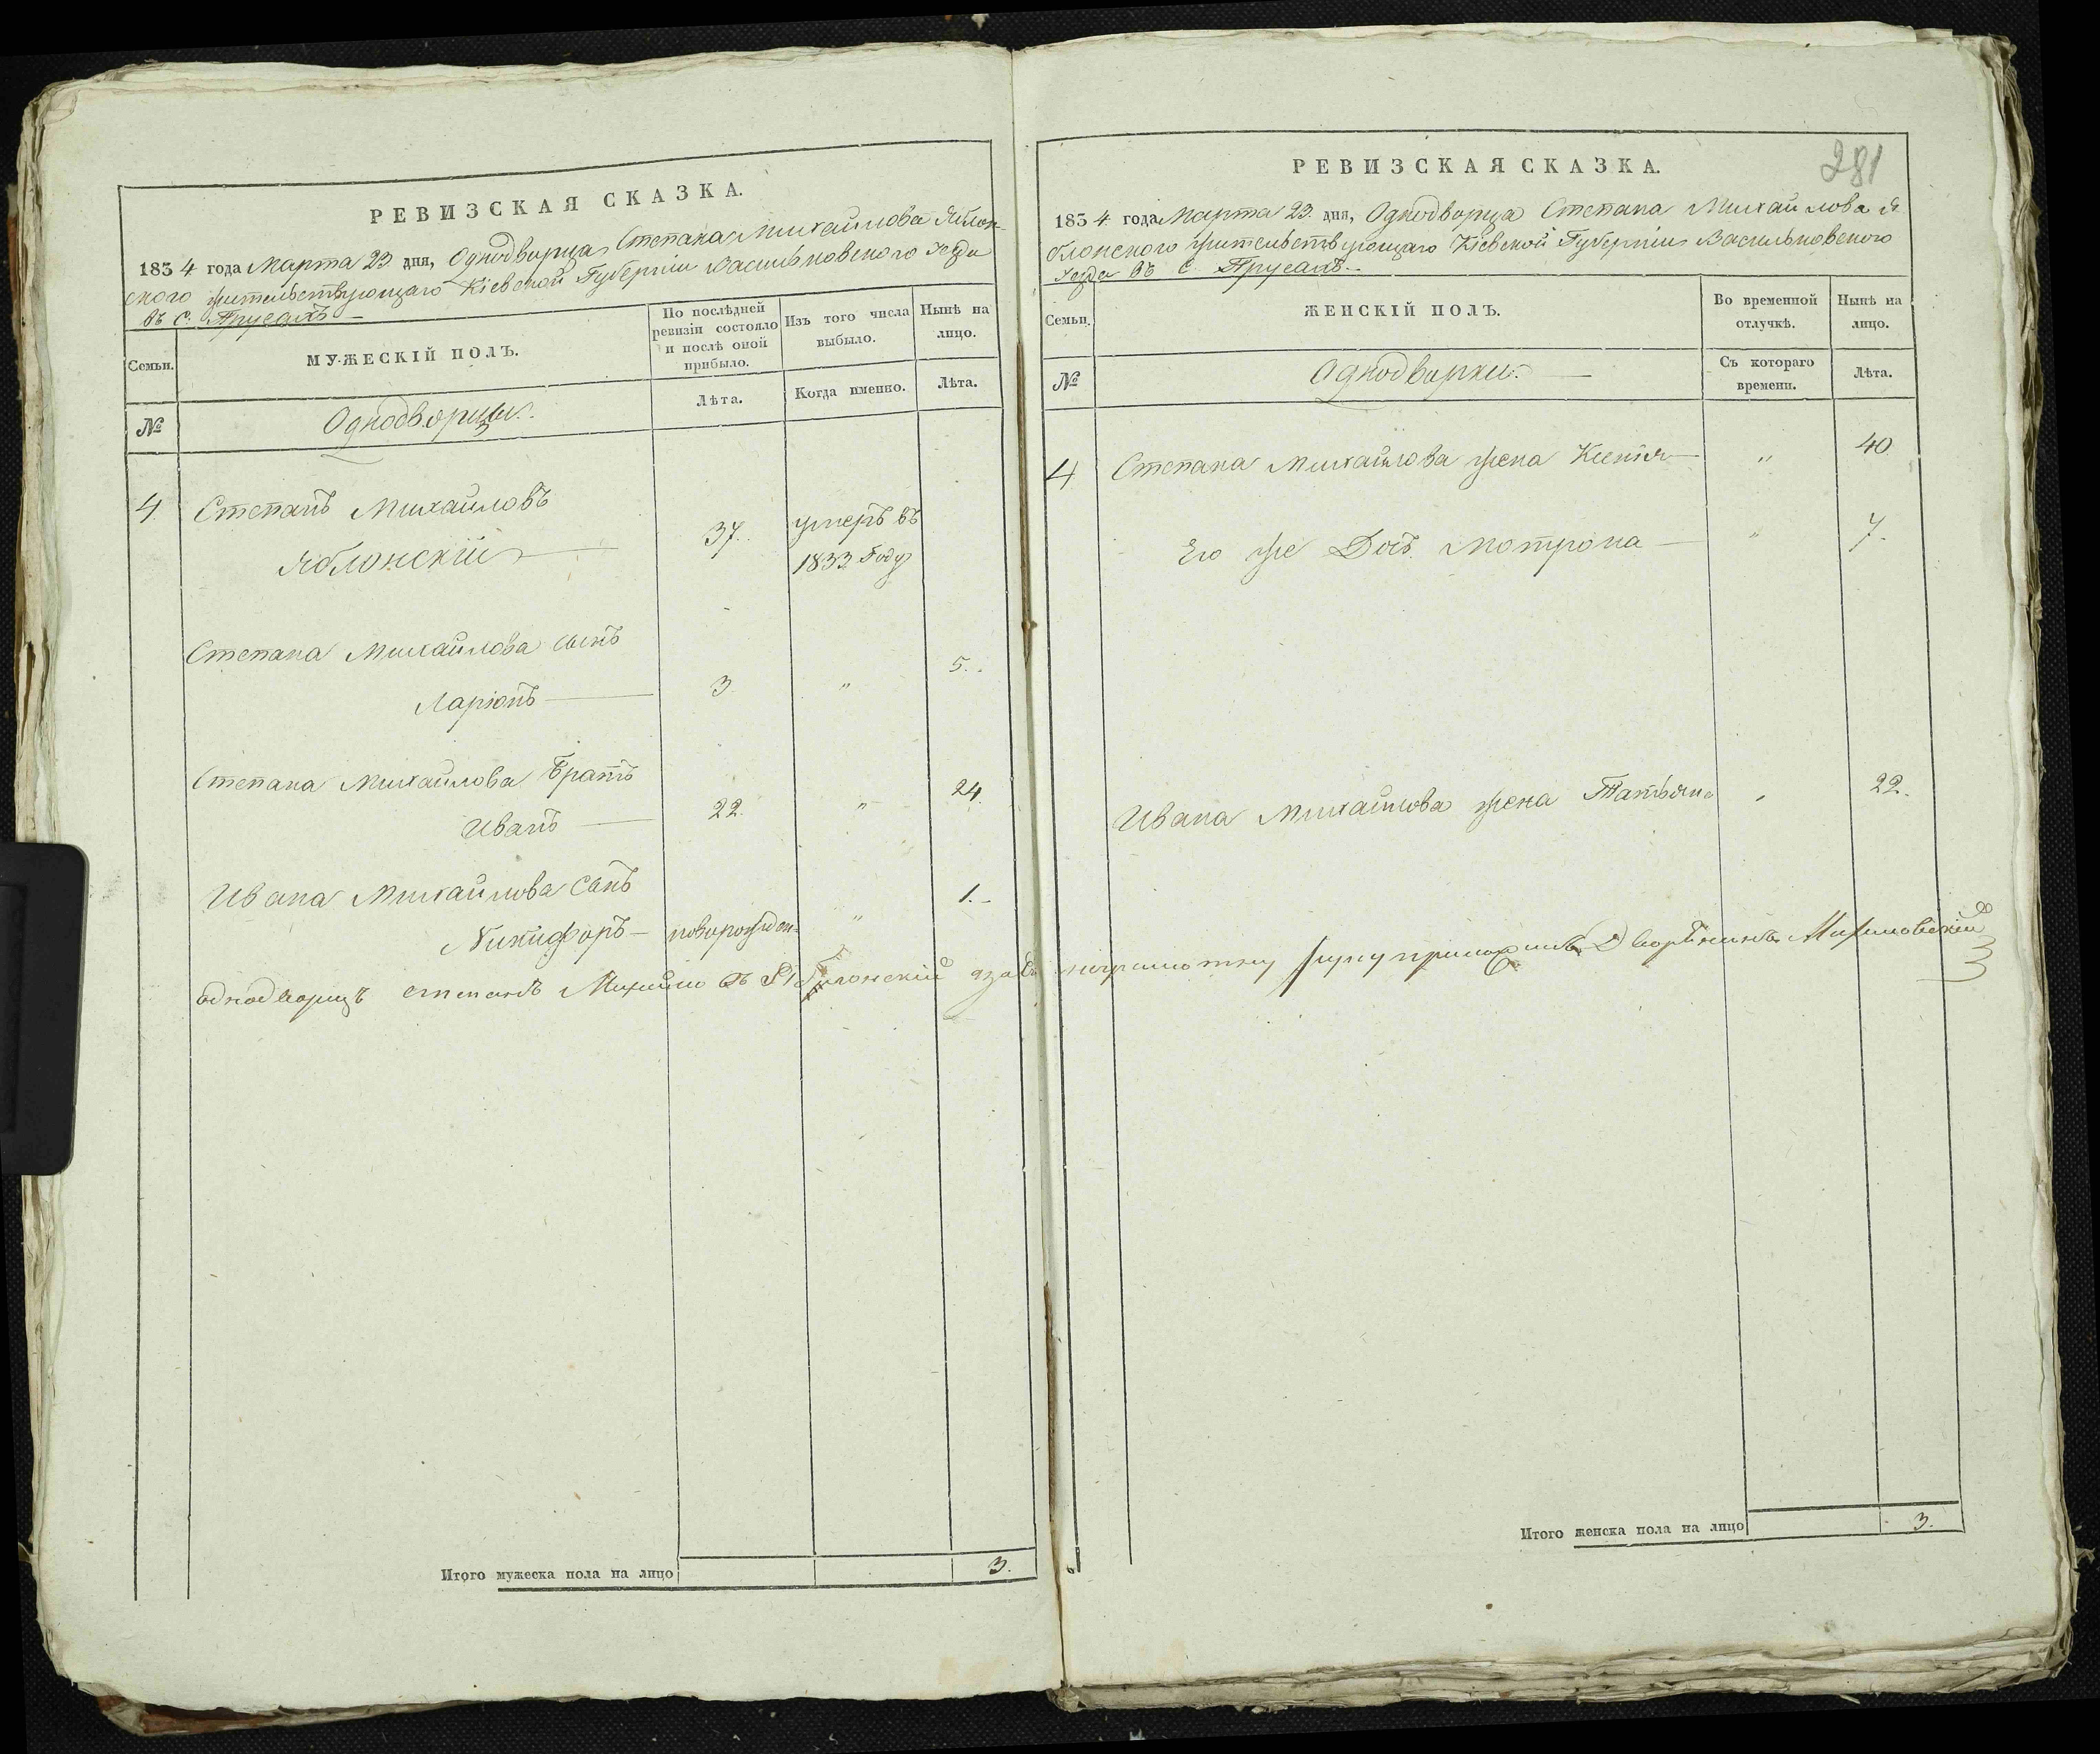 РЕВИЗСКАЯ СКАЗКА.
1834 года Марта 23 дня, Однодворца Степана Михайлова Яблон-
ского жительствующаго Кіевской Губерніи Васильковского уезда
въ с. Прусахъ
Семьи.
МУЖЕСКІЙ ПОЛЪ.
По послѣдней
ревизіи состояло
и послѣ оной
прибыло.
Изъ того числа
выбыло.
Нынѣ на
лицо.
№
Однодворцы.
Лѣта.
Когда именно.
Лѣта.
4. Степанъ Михайловъ
Яблонскій 37. умеръ въ
1833 году
Степана Михайлова сынъ
Ларіонъ 3 " 5.
Степана Михайлова Братъ
Иванъ 22. " 24.
Ивана Михайлова сынъ
Никифоръ новорожден- " 1.
однодворецъ степанъ Михайловъ Яблонскій
Итого мужеска пола на лицо 3.
281
РЕВИЗСКАЯ СКАЗКА.
1834 года Марта 23. дня, Однодворца Степана Михайлова Я
блонского жительствующаго Кіевской Губерніи Васильковского
уезда въ с. Прусахъ
Семьи.
ЖЕНСКІЙ ПОЛЪ.
Во временной
отлучкѣ.
Нынѣ на
лицо.
№
Однодворки.
Съ котораго
времени.
Лѣта.
4 Степана Михайлова жена Ксенія " 40
Его же Дочь Мотрона " 7.
Ивана Михайлова жена Татьяна " 22.
неграмотну руку приложилъ Дворянинъ
Итого женска пола на лицо 3.